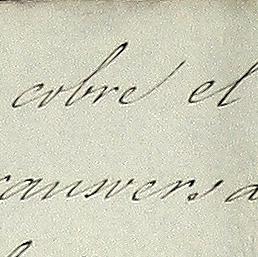 cobre el
ransversa